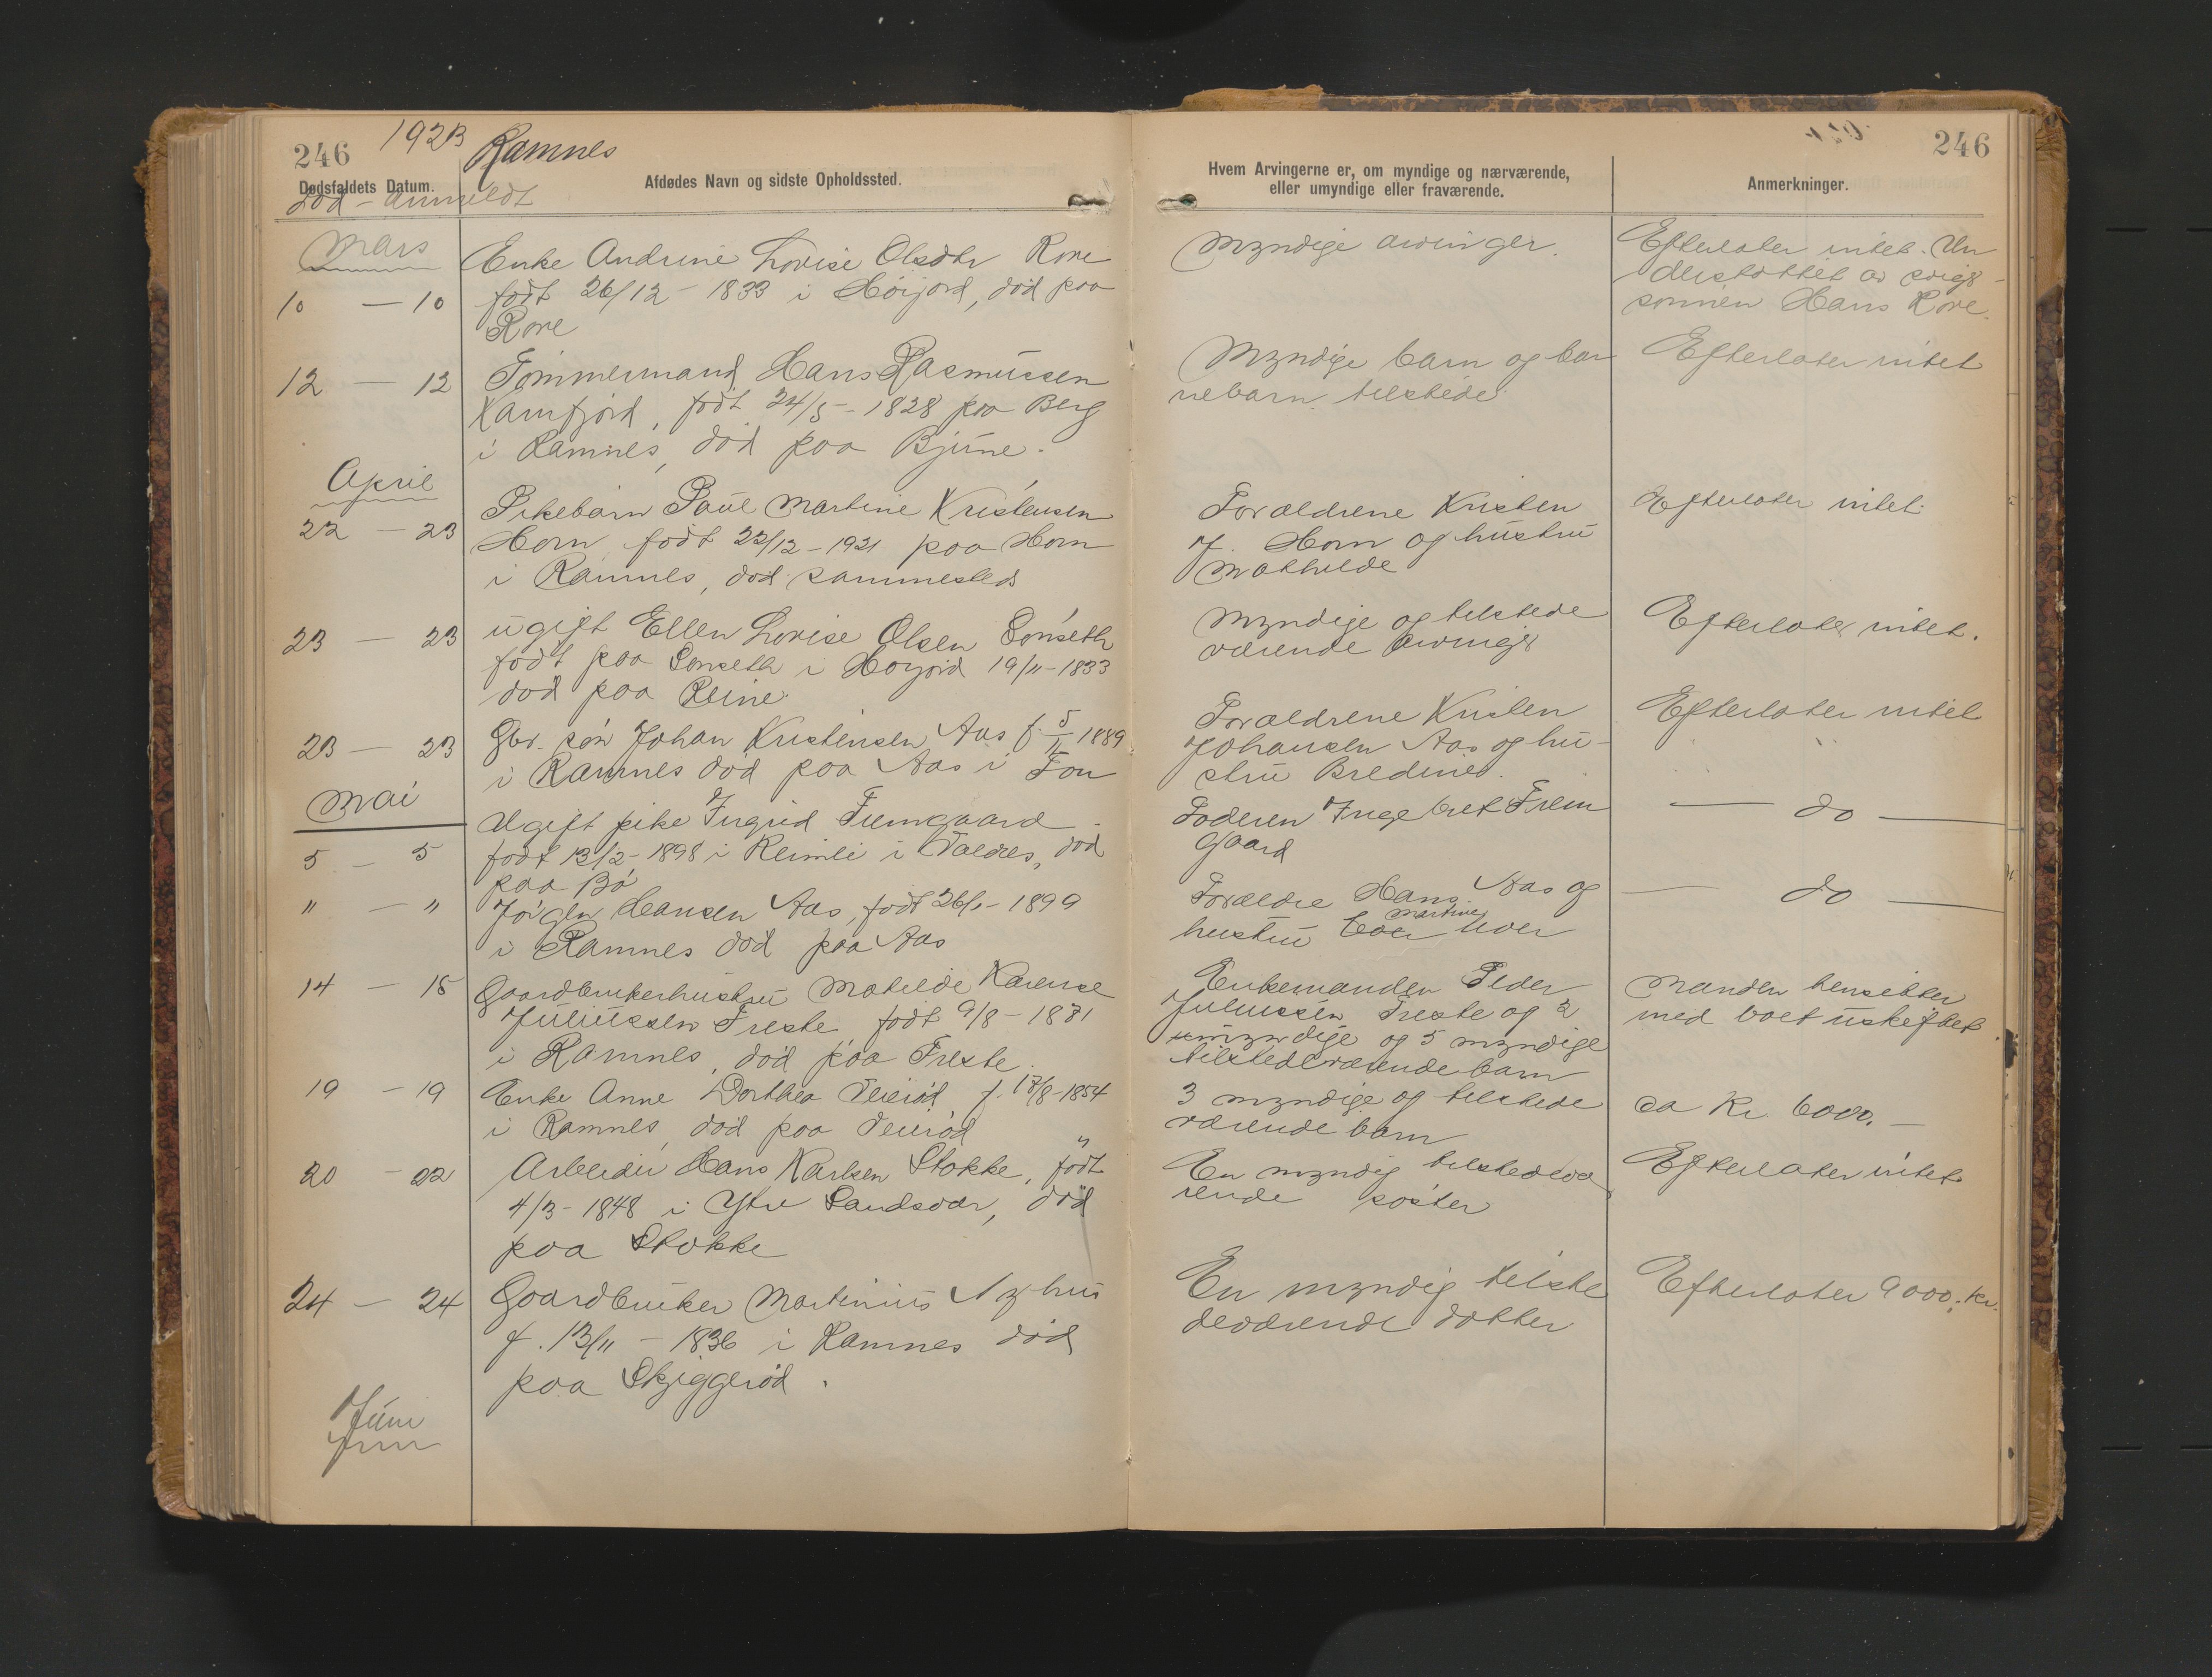 246 1923 Ramnes
Dødsfaldets Datum.
Afdødes Navn og sidste Opholdssted.
død - anmeldt
Mars
Enke Andrine Lovise Olsdtr Rore
10 — 10 født 26/12 - 1833 i Høijord, død paa
Rore
12 — 12 Tømmermand Hans Rasmussen
Kamfjord, født 24/5 - 1828 paa Berg
i Ramnes, død paa Bjune.
April
Pikebarn Paul Martine Kristensen
22 — 23 Horn født 22/12 - 1921 paa Horn
i Ramnes, død sammesteds
ugift Ellen Lovise Olsen Sønseth
23 — 23 født paa Sønseth i Høyjord 19/11 - 1833
død paa Reine
Gbr. søn Johan Kristensen Aas f. 5/11 1889
23 — 23 i Ramnes død paa Aas i Fon
Mai
Ugift pike Ingrid Fremgaard
5 — 5 født 13/2 - 1898 i Reinli i Valdres, død
paa Bø
" — " Jørgen Hansen Aas, født 26/1 - 1899
i Ramnes død paa Aas
14 — 15 Gaardbrukerhustru Matilde Karense
Juliussen Freste født 9/8 - 1871
i Ramnes, død paa Freste.
19 — 19 Enke Anne Dorthea f. 17/8 - 1854
i Ramnes, død paa
20 — 22 Arbeider Hans Karlsen Stokke, født
4/3 - 1848 i Ytre Sandsvær, død
paa Stokke
24 — 24 Gaardbruker Martinius Nyhus
f. 13/11 - 1836 i Ramnes død
paa Skjiggerød.
Juni
Juni
246
Hvem Arvingerne er, om myndige og nærværende,
eller umyndige eller fraværende.
Anmerkninger.
Myndige arvinger.
Efterlater intet. Un
derstøttet av svigr-
sønnen Hans Rore.
Myndige barn og bar
nebarn tilstede.
Efterlater intet
Forældrene Kristen
J. Horn og hustru
Mathilde
Efterlater intet.
Myndige og tilstede
værende arvingr
Efterlater intet.
Forældrene Kristen
Johansen Aas og hu-
stru Bredine.
Efterlater intet
Faderen Ingebret Frem
gaard
— do —
Forældre Hans Aas og
Martine
hustru
— do —
Enkemanden Peder
Juliussen Freste og 2
umyndige og 5 myndige
tilstedeværende barn
Manden hensitter
med boet uskiftet.
3 myndige og tilstede
værende barn
ca Kr. 6000.—
En myndig tilstedevæ
rende søster
Efterlater intet
En myndig tilste
deværende datter
Efterlater 9000,- kr.